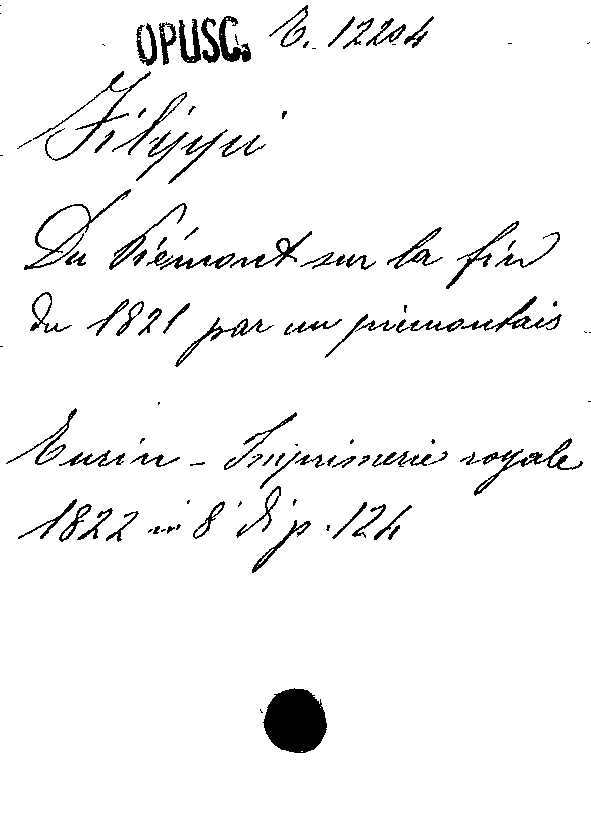 OPUSC. E. 12204
Filippi
Du Piémont sur la fin
du 1821 par un piémontais
Turin - Imprimerie royale
1822 in 8° di p. 124